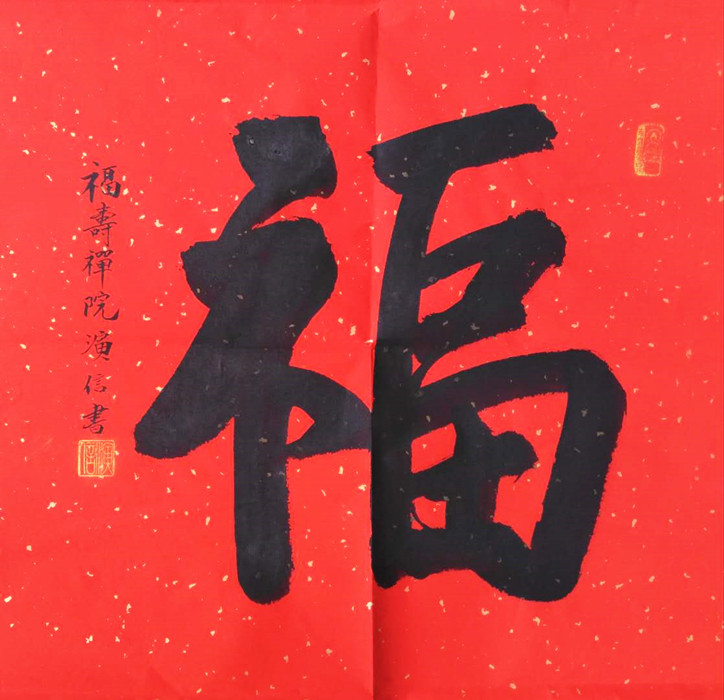 福
福壽禪院演信書
演信